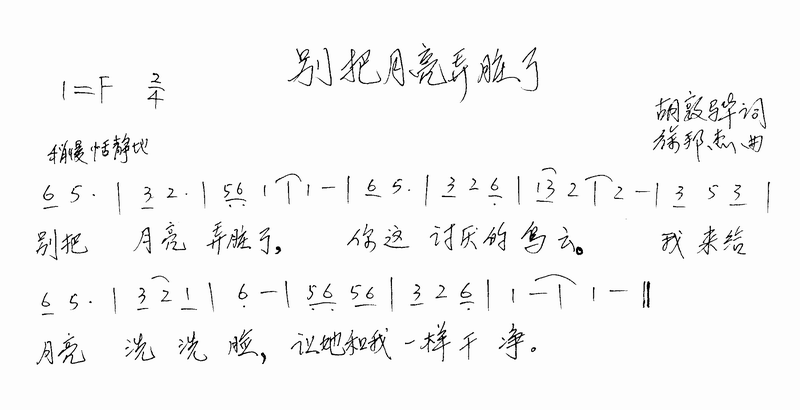 别把月亮弄脏了
1=F 2/4
胡敦骅词
徐邦杰曲
稍慢 恬静地
6 5· | 3 2· | 56 1 | 1 — | 6 5· | 3 2 6 | 13 2 | 2 — | 3 5 3 |
别把 月亮 弄脏了, 你这 讨厌的 乌云。 我来给
6 5· | 3 2 1 | 6 — | 56 56 | 3 2 6 | 1 — | 1 — ‖
月亮 洗洗脸, 让她和我一样干净。